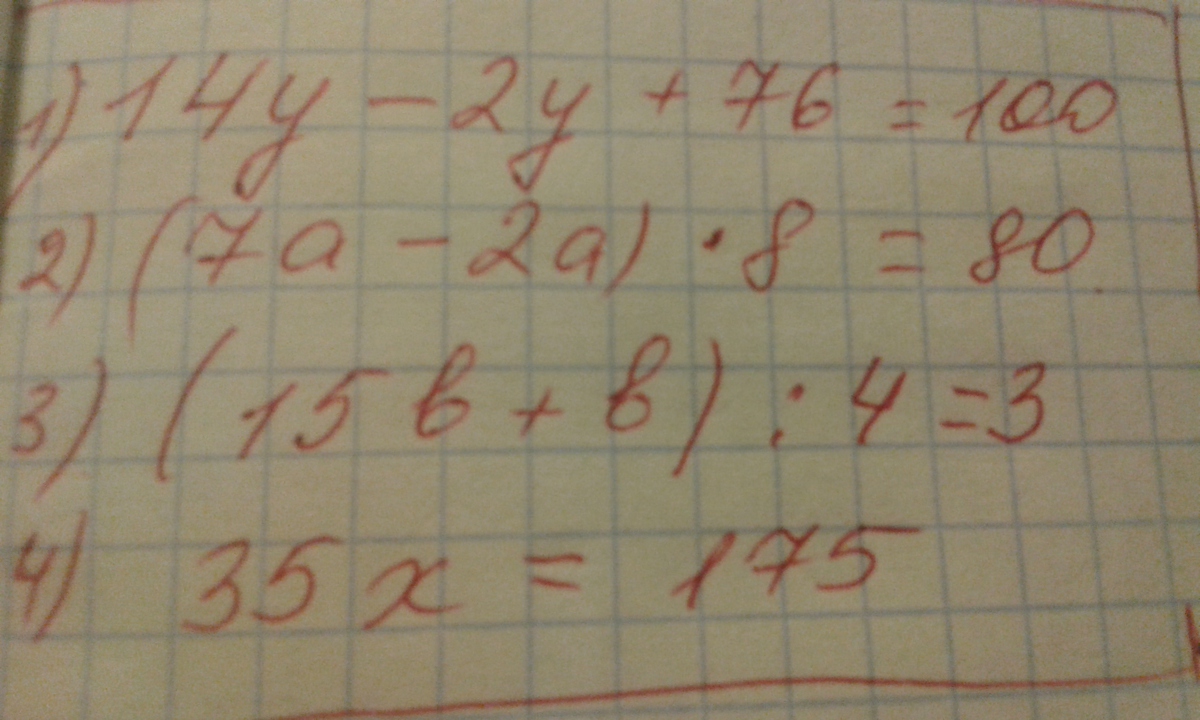 1) 14y - 2y + 76 = 100
2) (7a - 2a) · 8 = 80
3) (15в + в) : 4 = 3
4) 35x = 175